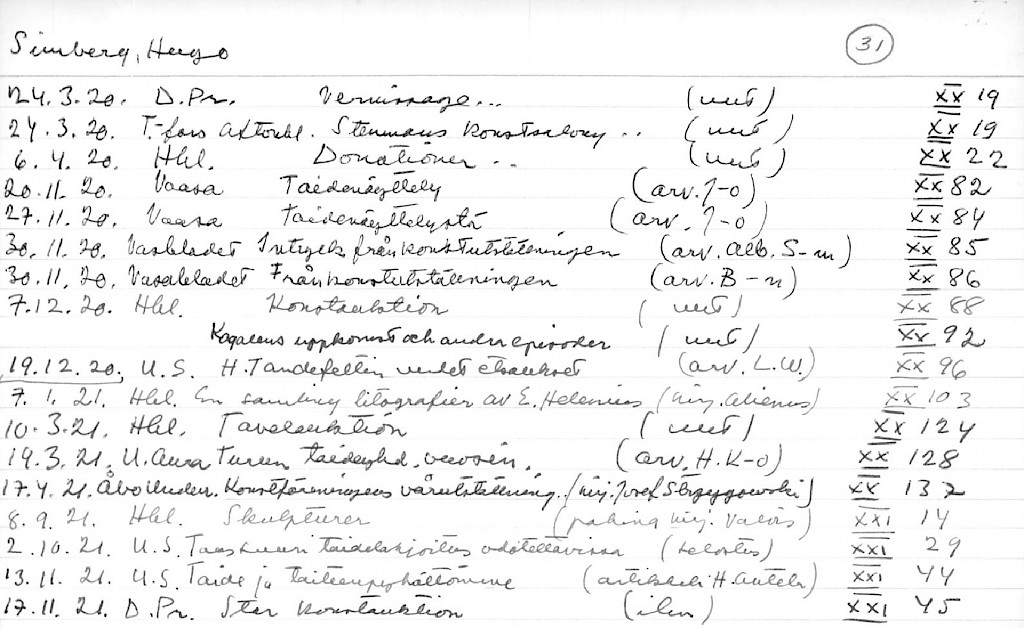 Simberg, Hugo 31
24.3.20. D.Pr. Vernissage... (uut) XX 19
24.3.20. T:fors Aftonbl. Stenmans Konstsalong .. (uut) XX 19
6.4.20. Hbl. Donationer .. (uut) XX 22
20.11.20. Vaasa Taidenäyttely (arv. J-o) XX 82
27.11.20. Vaasa Taidenäyttelystä (arv. J-o) XX 84
30.11.20. Vasabladet Intryck från konstutställningen (arv. Alb. S-m) XX 85
30.11.20. Vasabladet Från konstutställningen (arv. B-n) XX 86
7.12.20. Hbl. Konstauktion (uut) XX 88
uppkomst och andra episoder (uut) XX 92
19.12.20. U.S. H. Tandefeltin uudet etsaukset (arv. L.W.) XX 96
7.1.21. Hbl. En samling litografier av E. Helenius (kirj. Alienus) XX 103
10.3.21. Hbl. Tavelauktion (uut) XX 124
19.3.21. U.Aura Turun taideyhd. vuosin. (arv. H. K-o) XX 128
17.4.21. Åbo Underr. Konstföreningens vårutställning. (kirj. Josef Strzygowski) XX 132
8.9.21. Hbl. Skulpturer (kirj. Valois) XXI 14
2.10.21. U.S. Taas uusi taidekirjoitus odotettavissa (selostus) XXI 29
13.11.21. U.S. Taide ja (artikkeli H. ) XXI 44
17.11.21. D.Pr. Stor konstauktion (ilm) XXI 45